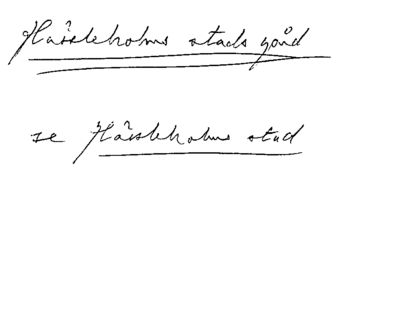 Hässleholms stads gård
se Hässleholms stad